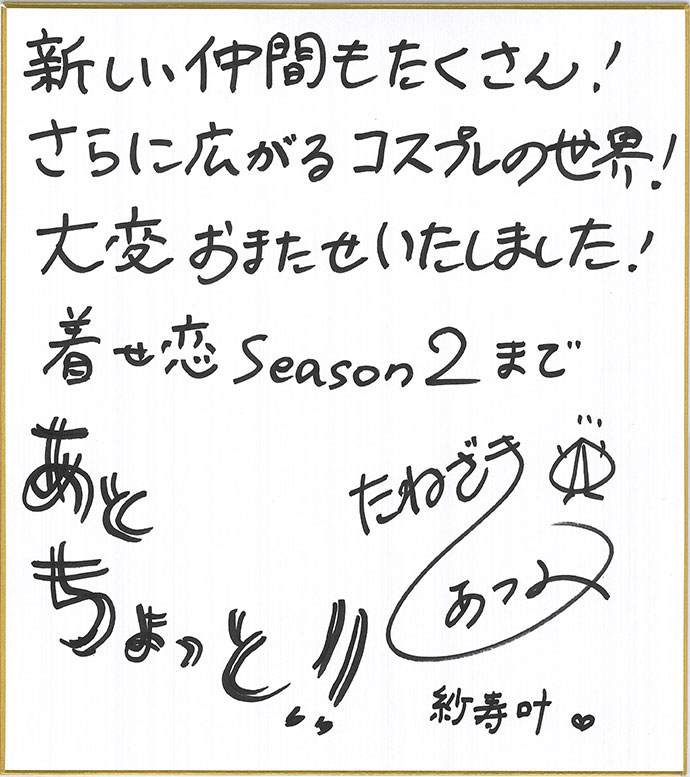 新しい仲間もたくさん!
さらに広がるコスプレの世界!
大変おまたせいたしました!
着せ恋 Season2まで
あと
ちょっと!!
たねざき
あつみ
紗寿叶